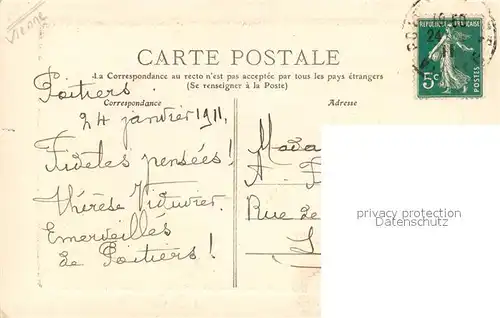 Vienne
RÉPUBLIQUE FRANÇAISE
5c
POSTES
24
CARTE POSTALE
La Correspondance au recto n'est pas acceptée par tous les pays étrangers
(Se renseigner à la Poste)
Correspondance
Adresse
Poitiers
24 janvier 1911,
Fidèles pensées!
Thérèse
Emerveillés
de Poitiers!
Mada
A.
Rue de
privacy protection
Datenschutz